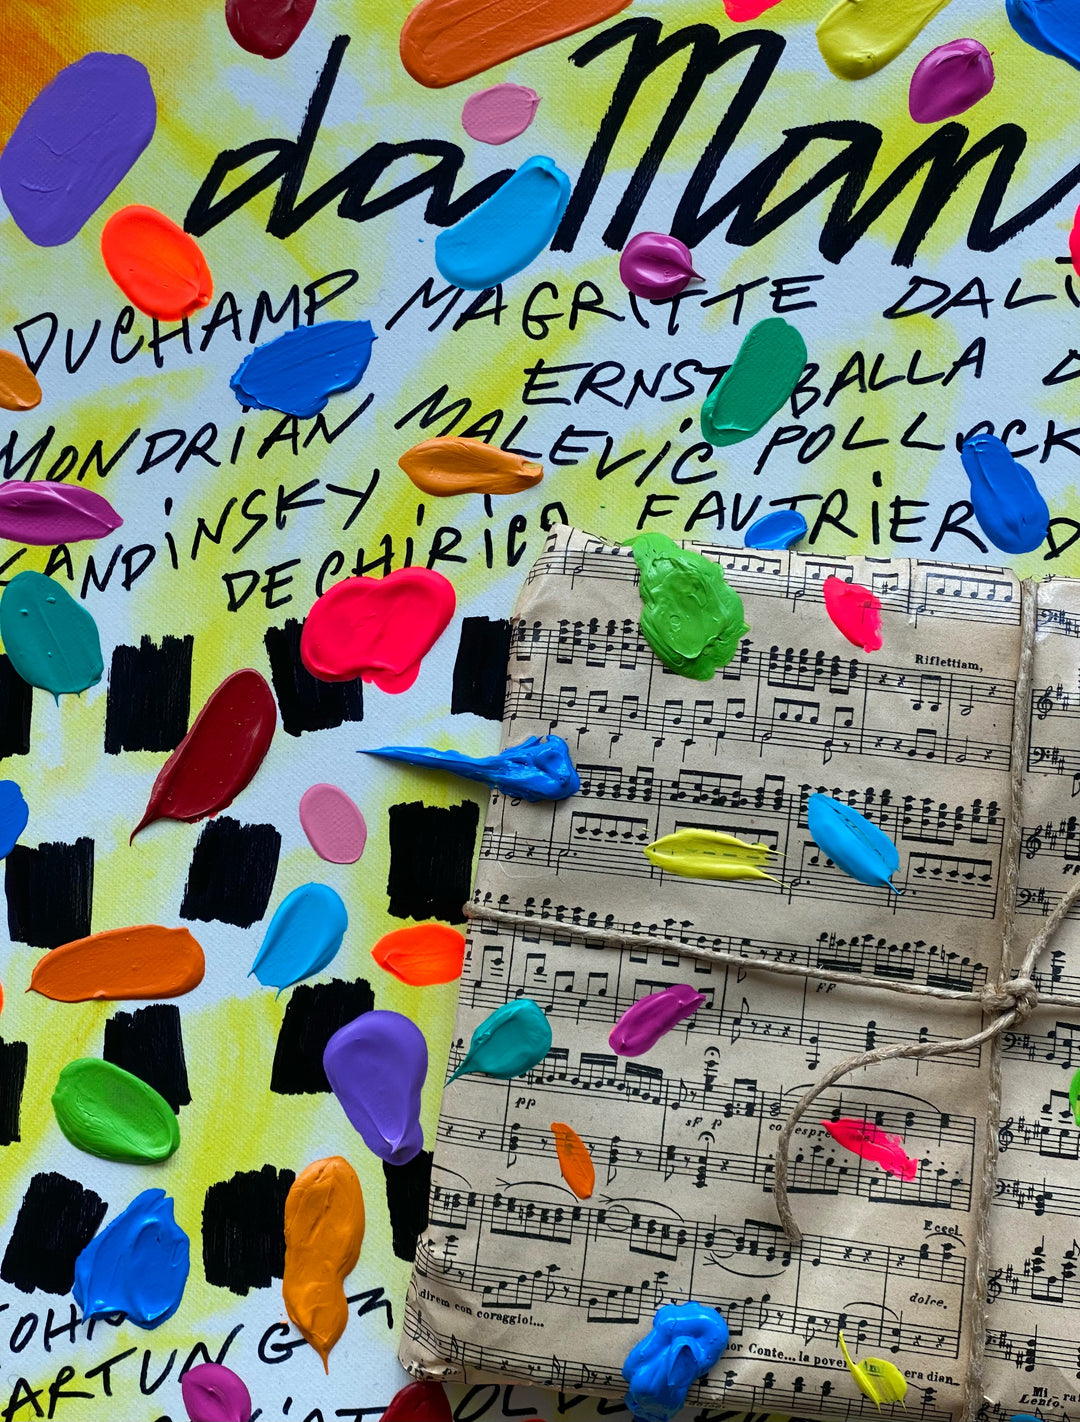 da Man
DUCHAMP MAGRITTE DALI
ERNST BALLA D
MONDRiAN MALEViC POLLOCK
KANDiNSKY FAUTRiER D
DE CHiRiCO
Riflettiam,
FF
pp
sf p
co espre
Eccel
dolce.
direm con coraggio!...
ior Conte... la pover era dian_
Mi_ra
Lento.
JOHN
ARTUNG